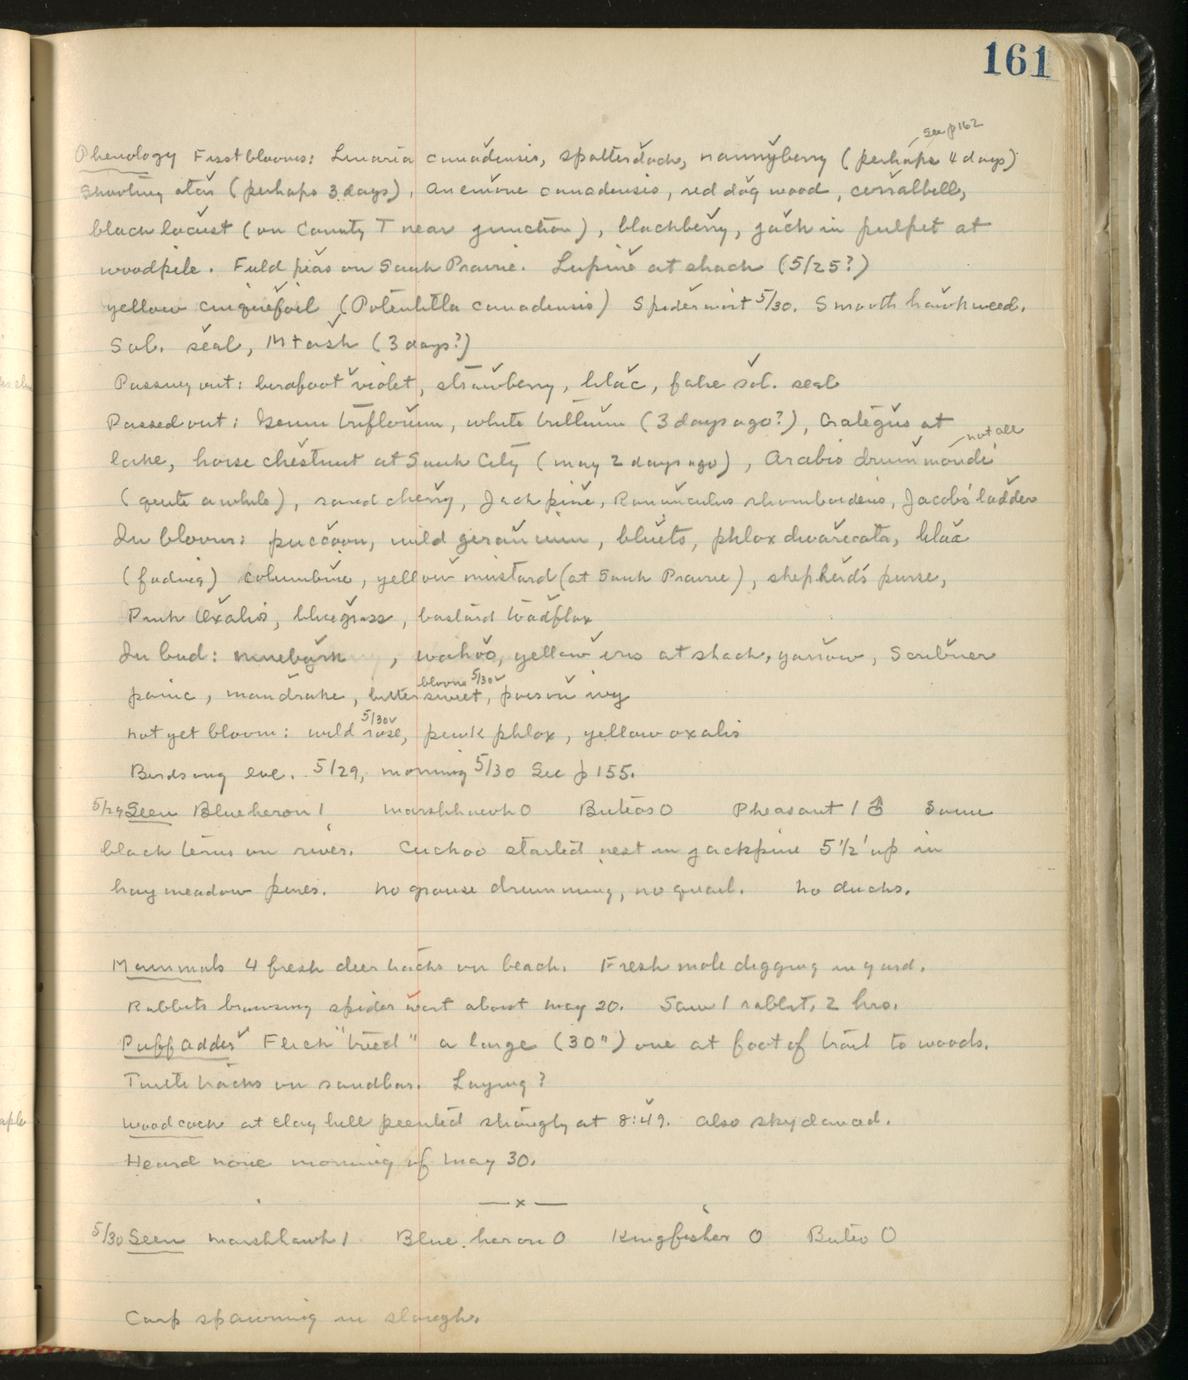 161
See p 162
Phenology First blooms: Linaria canadensis, spatterdock, nannyberry (perhaps 4 days)
Shooting star (perhaps 3 days), anemone canadensis, red dogwood, corralbell,
black locust (on County T near junction), blackberry, jack in pulpit at
woodpile. Field peas on Sauk Prairie. Lupine at shack (5/25?)
yellow cinquefoil (Potentilla canadensis) Spiderwort 5/30. Smooth hawkweed.
Sol. seal, Mt ash (3 days?)
Passing out: birdfoot violet, strawberry, lilac, false sol. seal
Passed out: Geum triflorum, white trillium (3 days ago?), Crategus at
not all
lake, horse chestnut at Sauk City (may 2 days ago), Arabis drummondi
(quite a while), sand cherry, Jackpine, Ranunculus rhomboideus, Jacobs' ladder
In bloom: puccoon, wild geranium, bluets, phlox divaricata, lilac
(fading) columbine, yellow mustard (at Sauk Prairie), shepherds purse,
Pink Oxalis, bluegrass, bastard toadflax
In bud: ninebark, wahoo, yellow iris at shack, yarrow, Scribner
blooms 5/30
panic, mandrake, bittersweet, poison ivy
5/30
not yet bloom: wild rose, pink phlox, yellow oxalis
Birdsong eve. 5/29, morning 5/30 See p 155.
5/29 Seen Blue heron 1 marshhawk 0 Buteos 0 Pheasant 1 ♂ Some
black terns on river. Cuckoo started nest in jackpine 5 1/2' up in
hay meadow pines. No grouse drumming, no quail. No ducks.
Mammals 4 fresh deer tracks on beach. Fresh mole digging in yard.
Rabbits browsing spiderwort about May 20. Saw 1 rabbit, 2 hrs.
Puff Adder Flick "treed" a large (30") one at foot of trail to woods.
Turtle tracks on sandbar. Laying?
Woodcock at clay hill peented strongly at 8:49. Also skydanced.
Heard none morning of May 30.
—x—
5/30 Seen marshhawk 1 Blue heron 0 Kingfisher 0 Buteo 0
Carp spawning in slough.